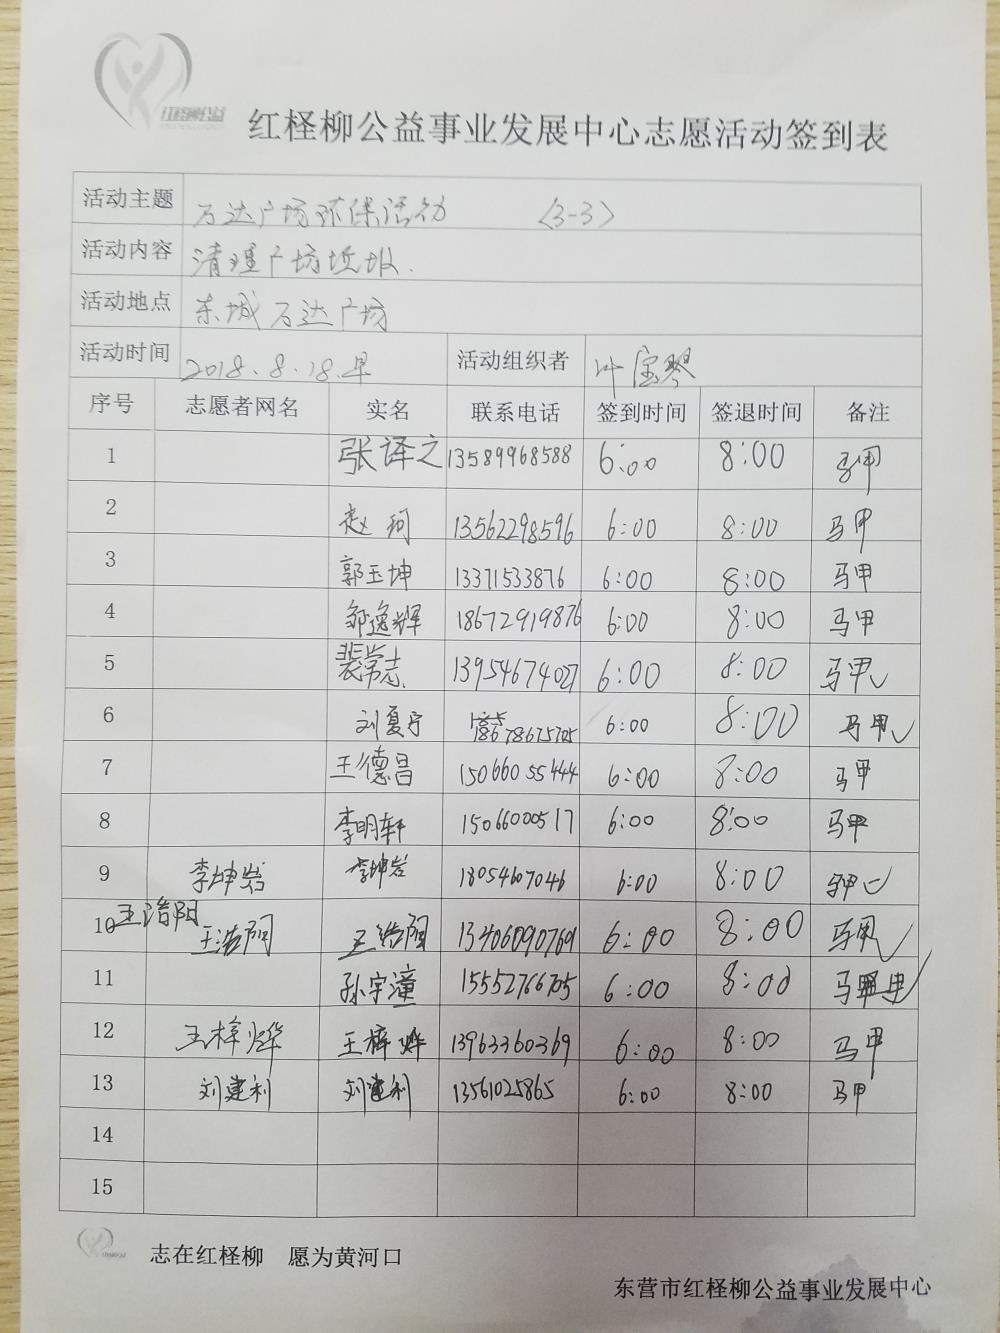 红柽柳公益
红柽柳公益事业发展中心志愿活动签到表
活动主题 万达广场环保活动 (3-3)
活动内容 清理广场垃圾.
活动地点 东城万达广场
活动时间 2018.8.18.早 活动组织者 叶宝琴
序号 志愿者网名 实名 联系电话 签到时间 签退时间 备注
1 张译之 13589968588 6:00 8:00 马甲
2 赵珂 13562298596 6:00 8:00 马甲
3 郭玉坤 13371533876 6:00 8:00 马甲
4 邹逸辉 18672919876 6:00 8:00 马甲
5 裴常志 13954674027 6:00 8:00 马甲✓
6 刘夏宁 18678675705 6:00 8:00 马甲✓
7 王德昌 15066055444 6:00 8:00 马甲
8 李明轩 15066000517 6:00 8:00 马甲
9 李坤岩 李坤岩 18054607046 6:00 8:00 马甲✓
王浩阳
10 王浩阳 王浩阳 13406090769 6:00 8:00 马甲✓
11 孙宇潼 15552766705 6:00 8:00 马甲✓
12 王梓烨 王梓烨 13963360369 6:00 8:00 马甲
13 刘建利 刘建利 13561025865 6:00 8:00 马甲
14
15
志在红柽柳 愿为黄河口
东营市红柽柳公益事业发展中心